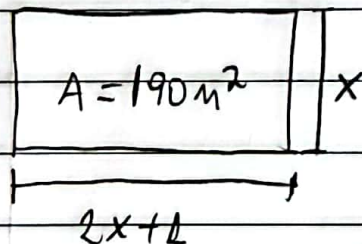 A = 190 m² x
2x+1